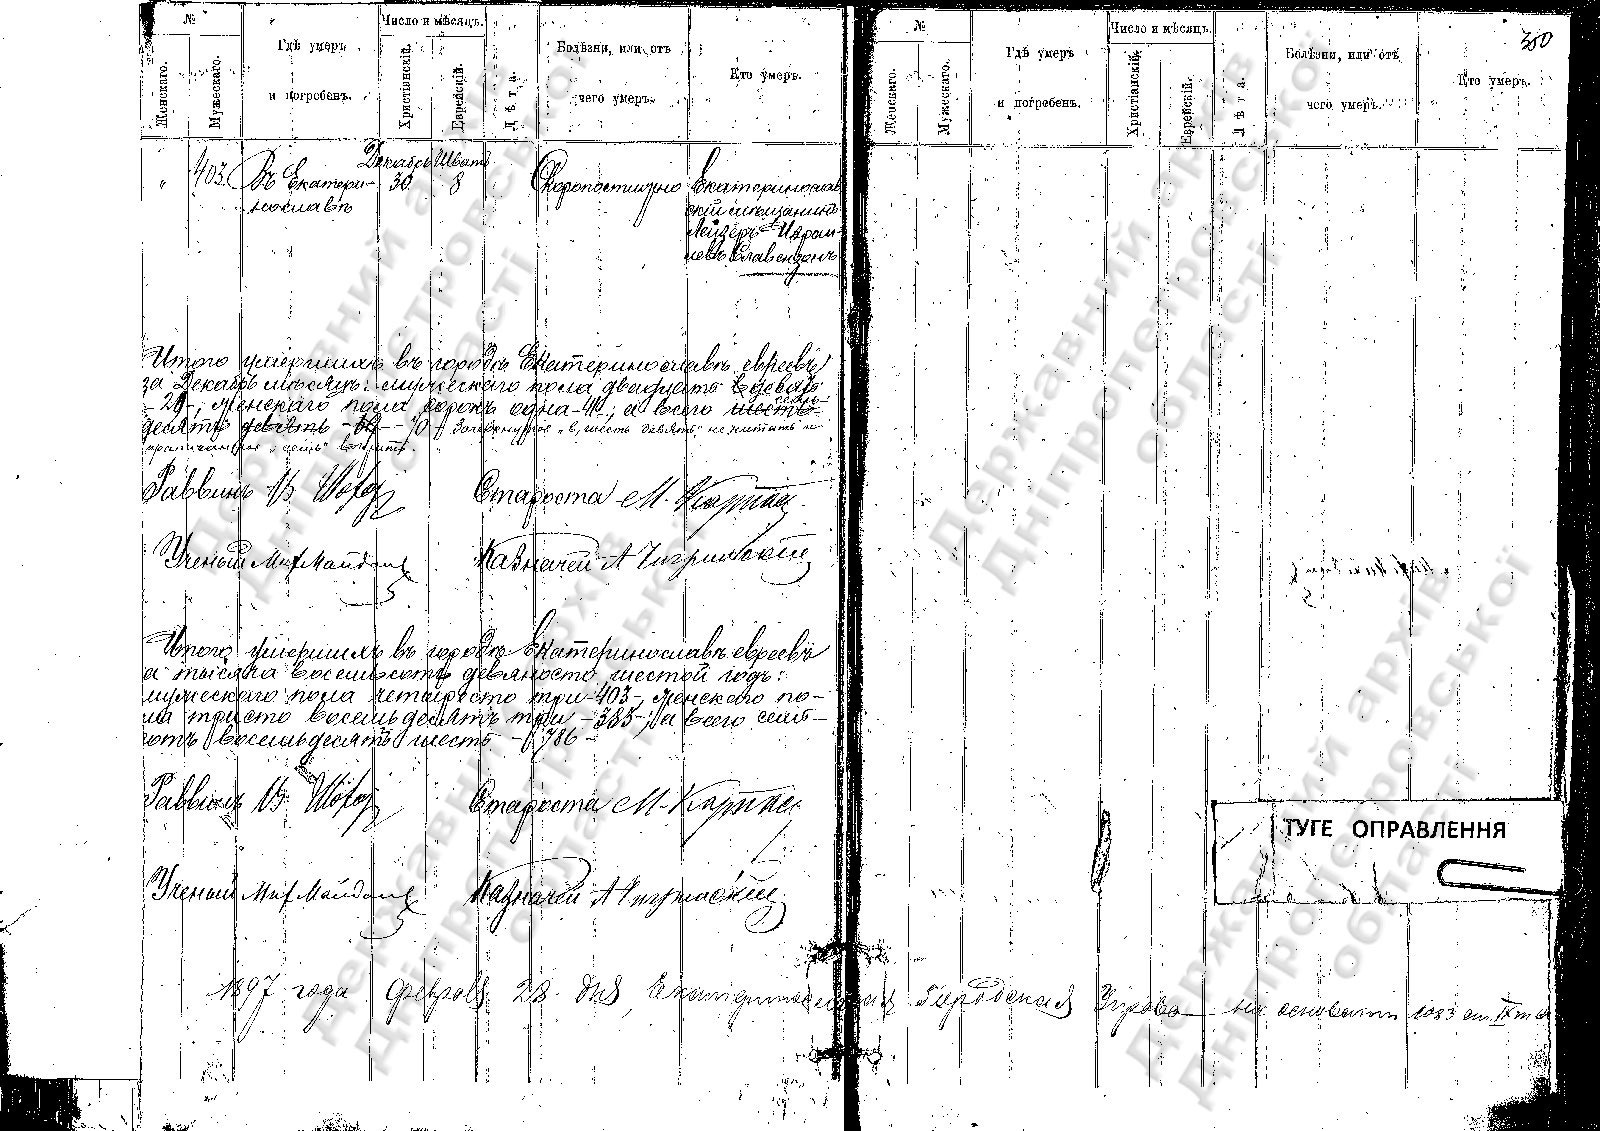 №
Женскаго.
Мужескаго.
Гдѣ умеръ
и погребенъ.
Число и мѣсяцъ.
Христіанскій.
Еврейскій.
Лѣта.
Болѣзни, или отъ
чего умеръ.
Кто умеръ.
"
403.
Въ Екатери-
нославѣ
Декабрь
30
Шватъ
8
Скоропостижно
Екатеринослав
скій мѣщанинъ
Лейзеръ Израи-
левъ Славензонъ
Итого умершихъ въ городѣ Екатеринославѣ евреевъ
за Декабрь мѣсяцъ: мужескаго пола двадцать девять
-29-, женскаго пола сорокъ одна-41-, а всего шесть семь-
десять девять -69- 70- Зачеркнутое "в, шесть девять" не читать а
"семь" читать.
Раввинъ В. Шохоръ
Староста М. Карпас
Ученый Мих Майданъ
Казначей А Чигринскій
Итого умершихъ въ городѣ Екатеринославѣ евреевъ
за тысяча восемьсотъ девяносто шестой годъ:
мужескаго пола четыреста три-403-, женскаго по-
ла триста восемьдесятъ три -383-, а всего семь-
сотъ восемьдесятъ шесть - 786 -
Раввинъ В. Шохоръ
Староста М. Карпас
Ученый Мих Майданъ
Казначей А Чигринскій
1897 года Февраля 28 дня, Екатеринославская Городская Управа на основаніи 1083 ст. IX т
№
Женскаго.
Мужескаго.
Гдѣ умеръ
и погребенъ.
Число и мѣсяцъ.
Христіанскій.
Еврейскій.
Лѣта.
Болѣзни, или отъ
чего умеръ.
Кто умеръ.
350
ТУГЕ ОПРАВЛЕННЯ
Державний архів
Дніпропетровської
області